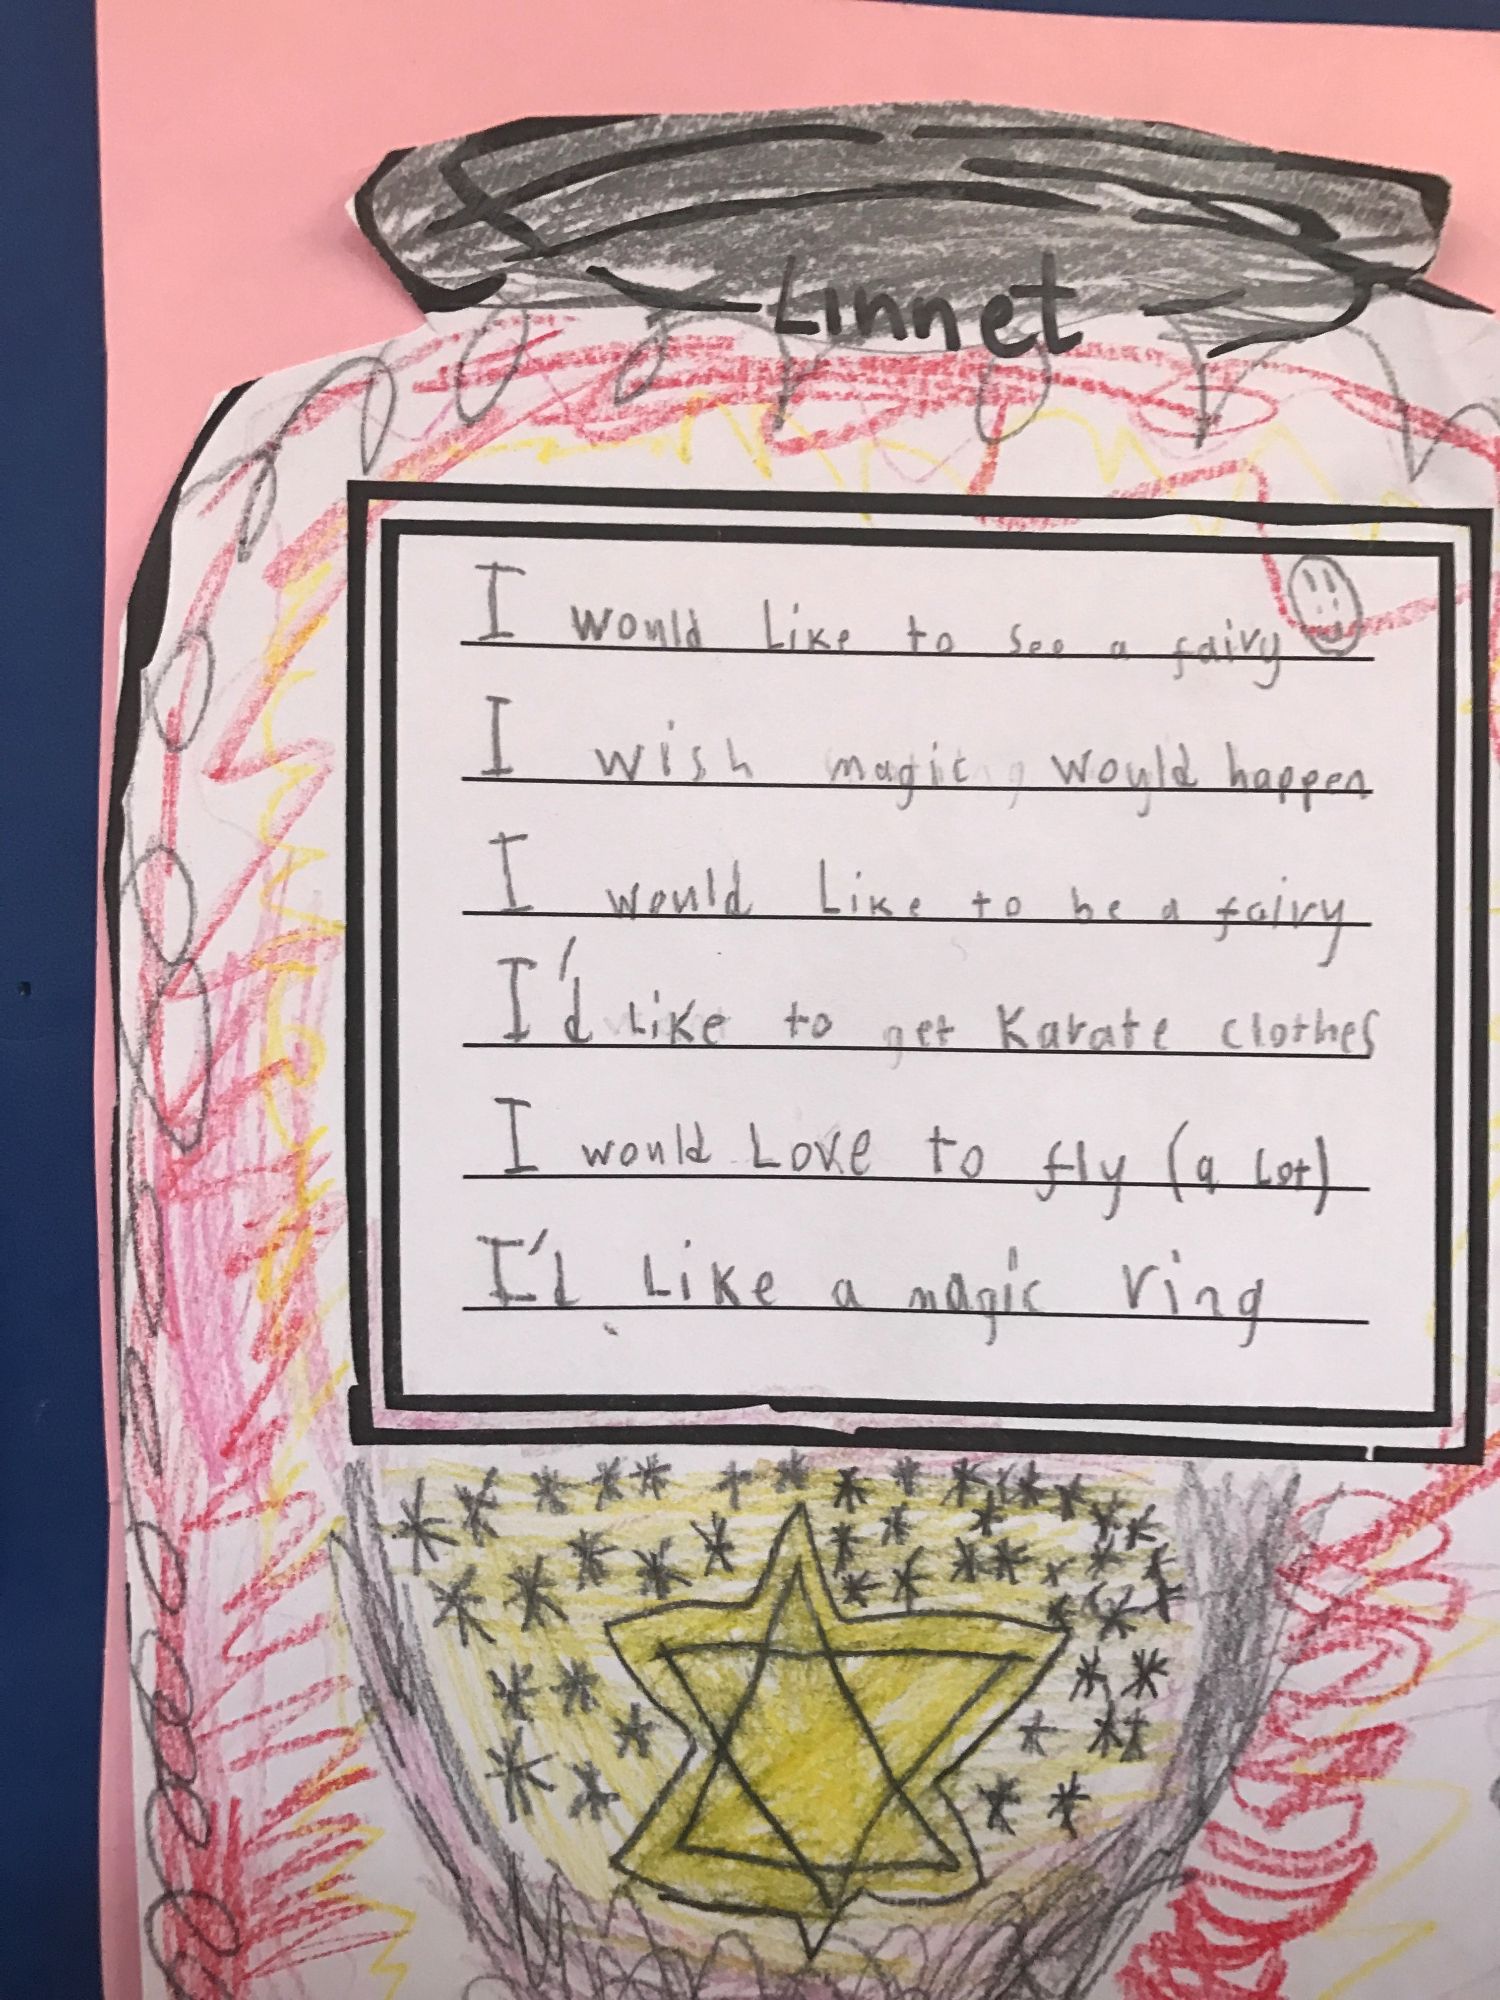 Linnet
I would Like to see a fairy
I wish magic would happen
I would Like to be a fairy
I'd Like to get Karate clothes
I would Love to fly (a Lot)
I'd Like a magic ring